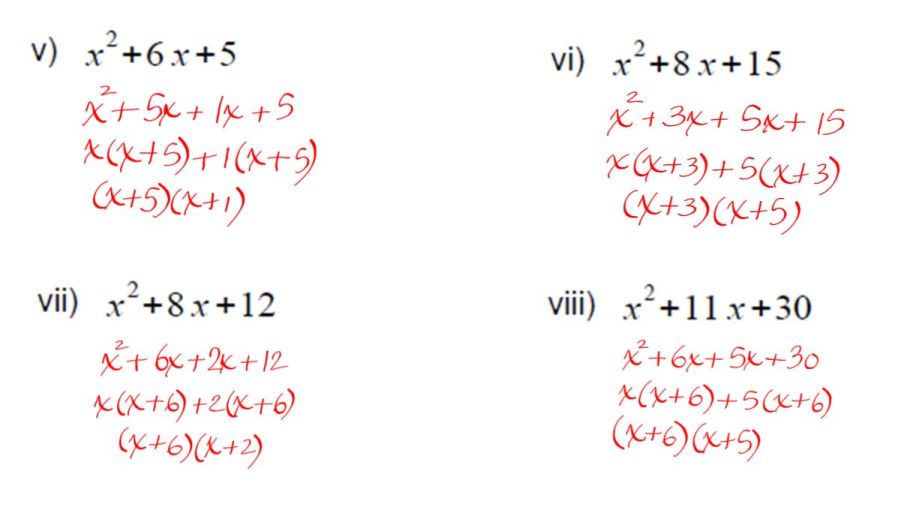 v) x²+6x+5
x²+5x+1x+5
x(x+5)+1(x+5)
(x+5)(x+1)
vi) x²+8x+15
x²+3x+5x+15
x(x+3)+5(x+3)
(x+3)(x+5)
vii) x²+8x+12
x²+6x+2x+12
x(x+6)+2(x+6)
(x+6)(x+2)
viii) x²+11x+30
x²+6x+5x+30
x(x+6)+5(x+6)
(x+6)(x+5)